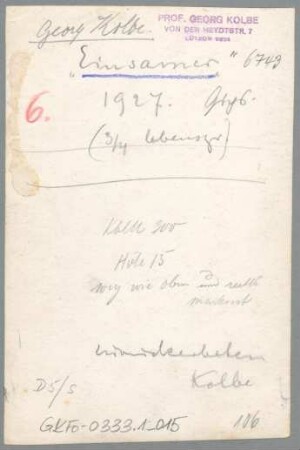 Georg Kolbe.
PROF. GEORG KOLBE
VON DER HEYDTSTR. 7
"Einsamer" 6749
6.
1927. Gips.
(3/4 lebensgr)
300
15
wie oben und
Kolbe
D5/5
GKFo-0333.1_015
106